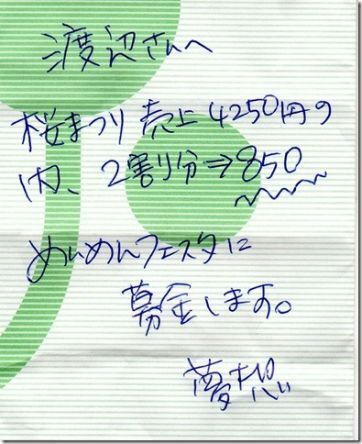 渡辺さんへ
桜まつり売上4250円の
内、2割り分⇒850
めぃめんフェスタに
募金します。
夢想